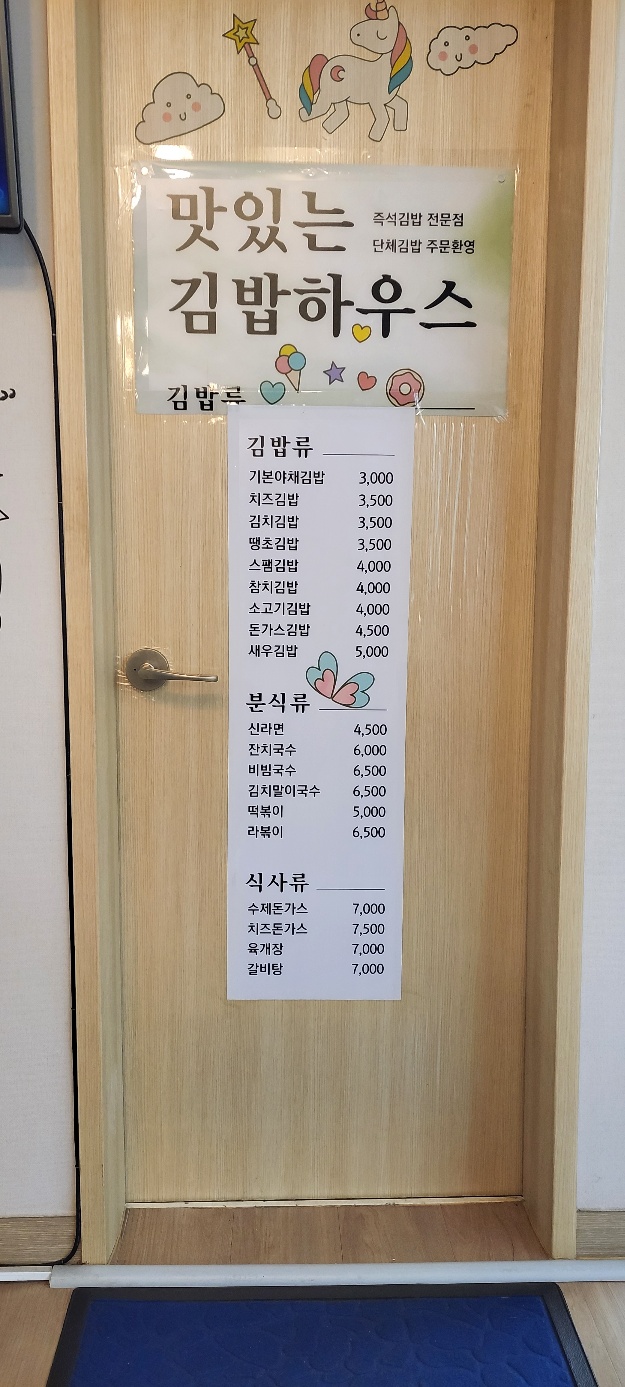 맛있는
즉석김밥 전문점
단체김밥 주문환영
김밥하우스
김밥류
김밥류
기본야채김밥 3,000
치즈김밥 3,500
김치김밥 3,500
땡초김밥 3,500
스팸김밥 4,000
참치김밥 4,000
소고기김밥 4,000
돈가스김밥 4,500
새우김밥 5,000
분식류
신라면 4,500
잔치국수 6,000
비빔국수 6,500
김치말이국수 6,500
떡볶이 5,000
라볶이 6,500
식사류
수제돈가스 7,000
치즈돈가스 7,500
육개장 7,000
갈비탕 7,000